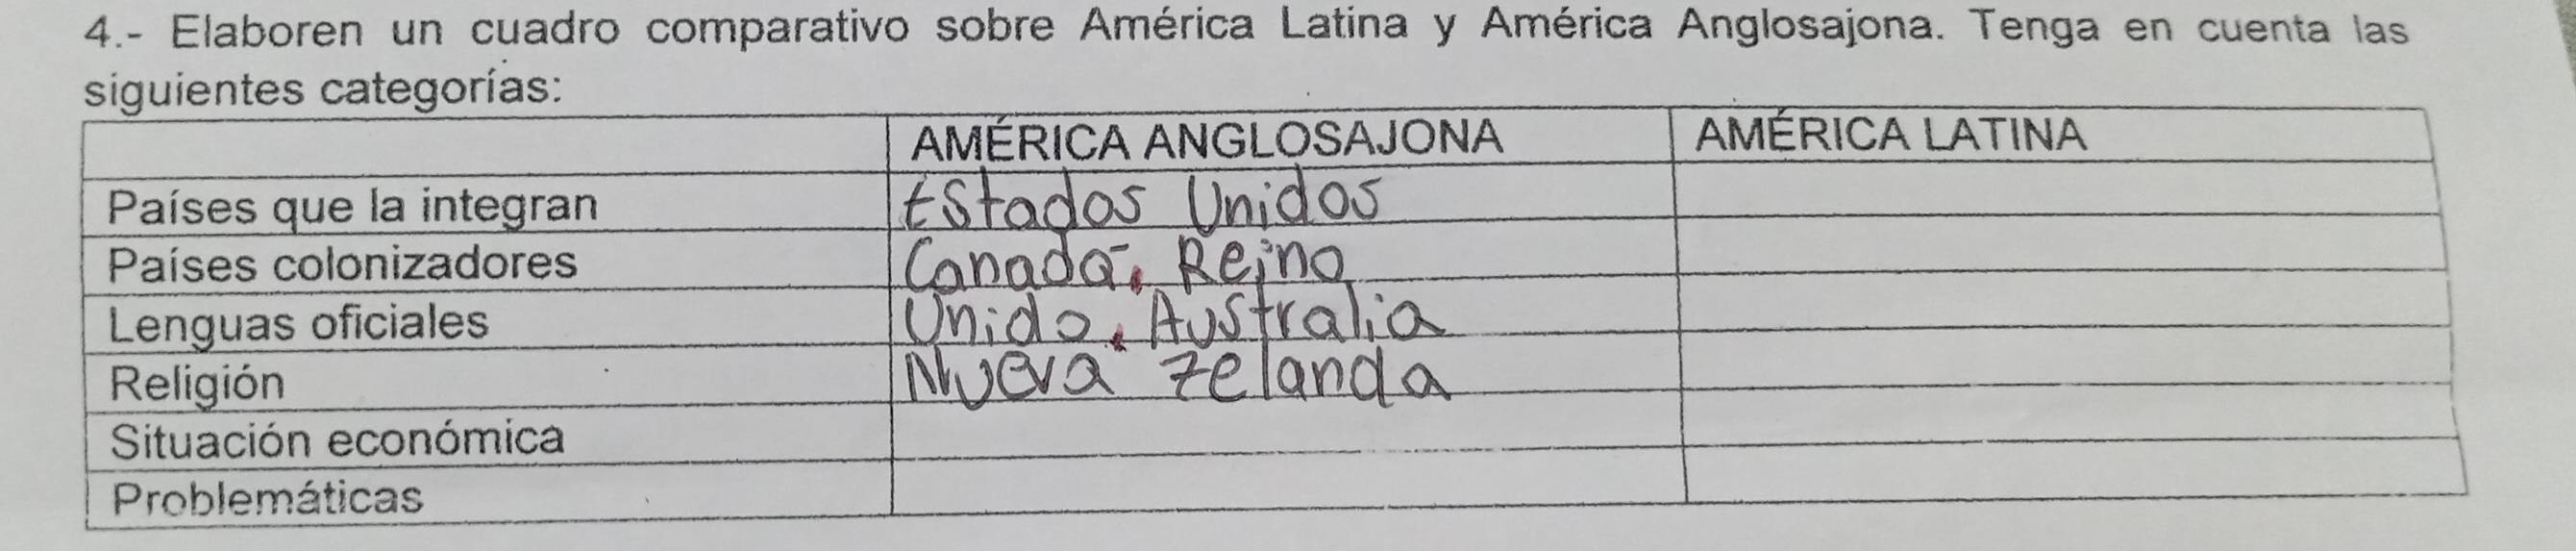 4.- Elaboren un cuadro comparativo sobre América Latina y América Anglosajona. Tenga en cuenta las
siguientes categorías:
AMÉRICA ANGLOSAJONA AMÉRICA LATINA
Países que la integran Estados Unidos
Países colonizadores Canadá, Reino
Lenguas oficiales Unido, Australia
Religión Nueva Zelanda
Situación económica
Problemáticas